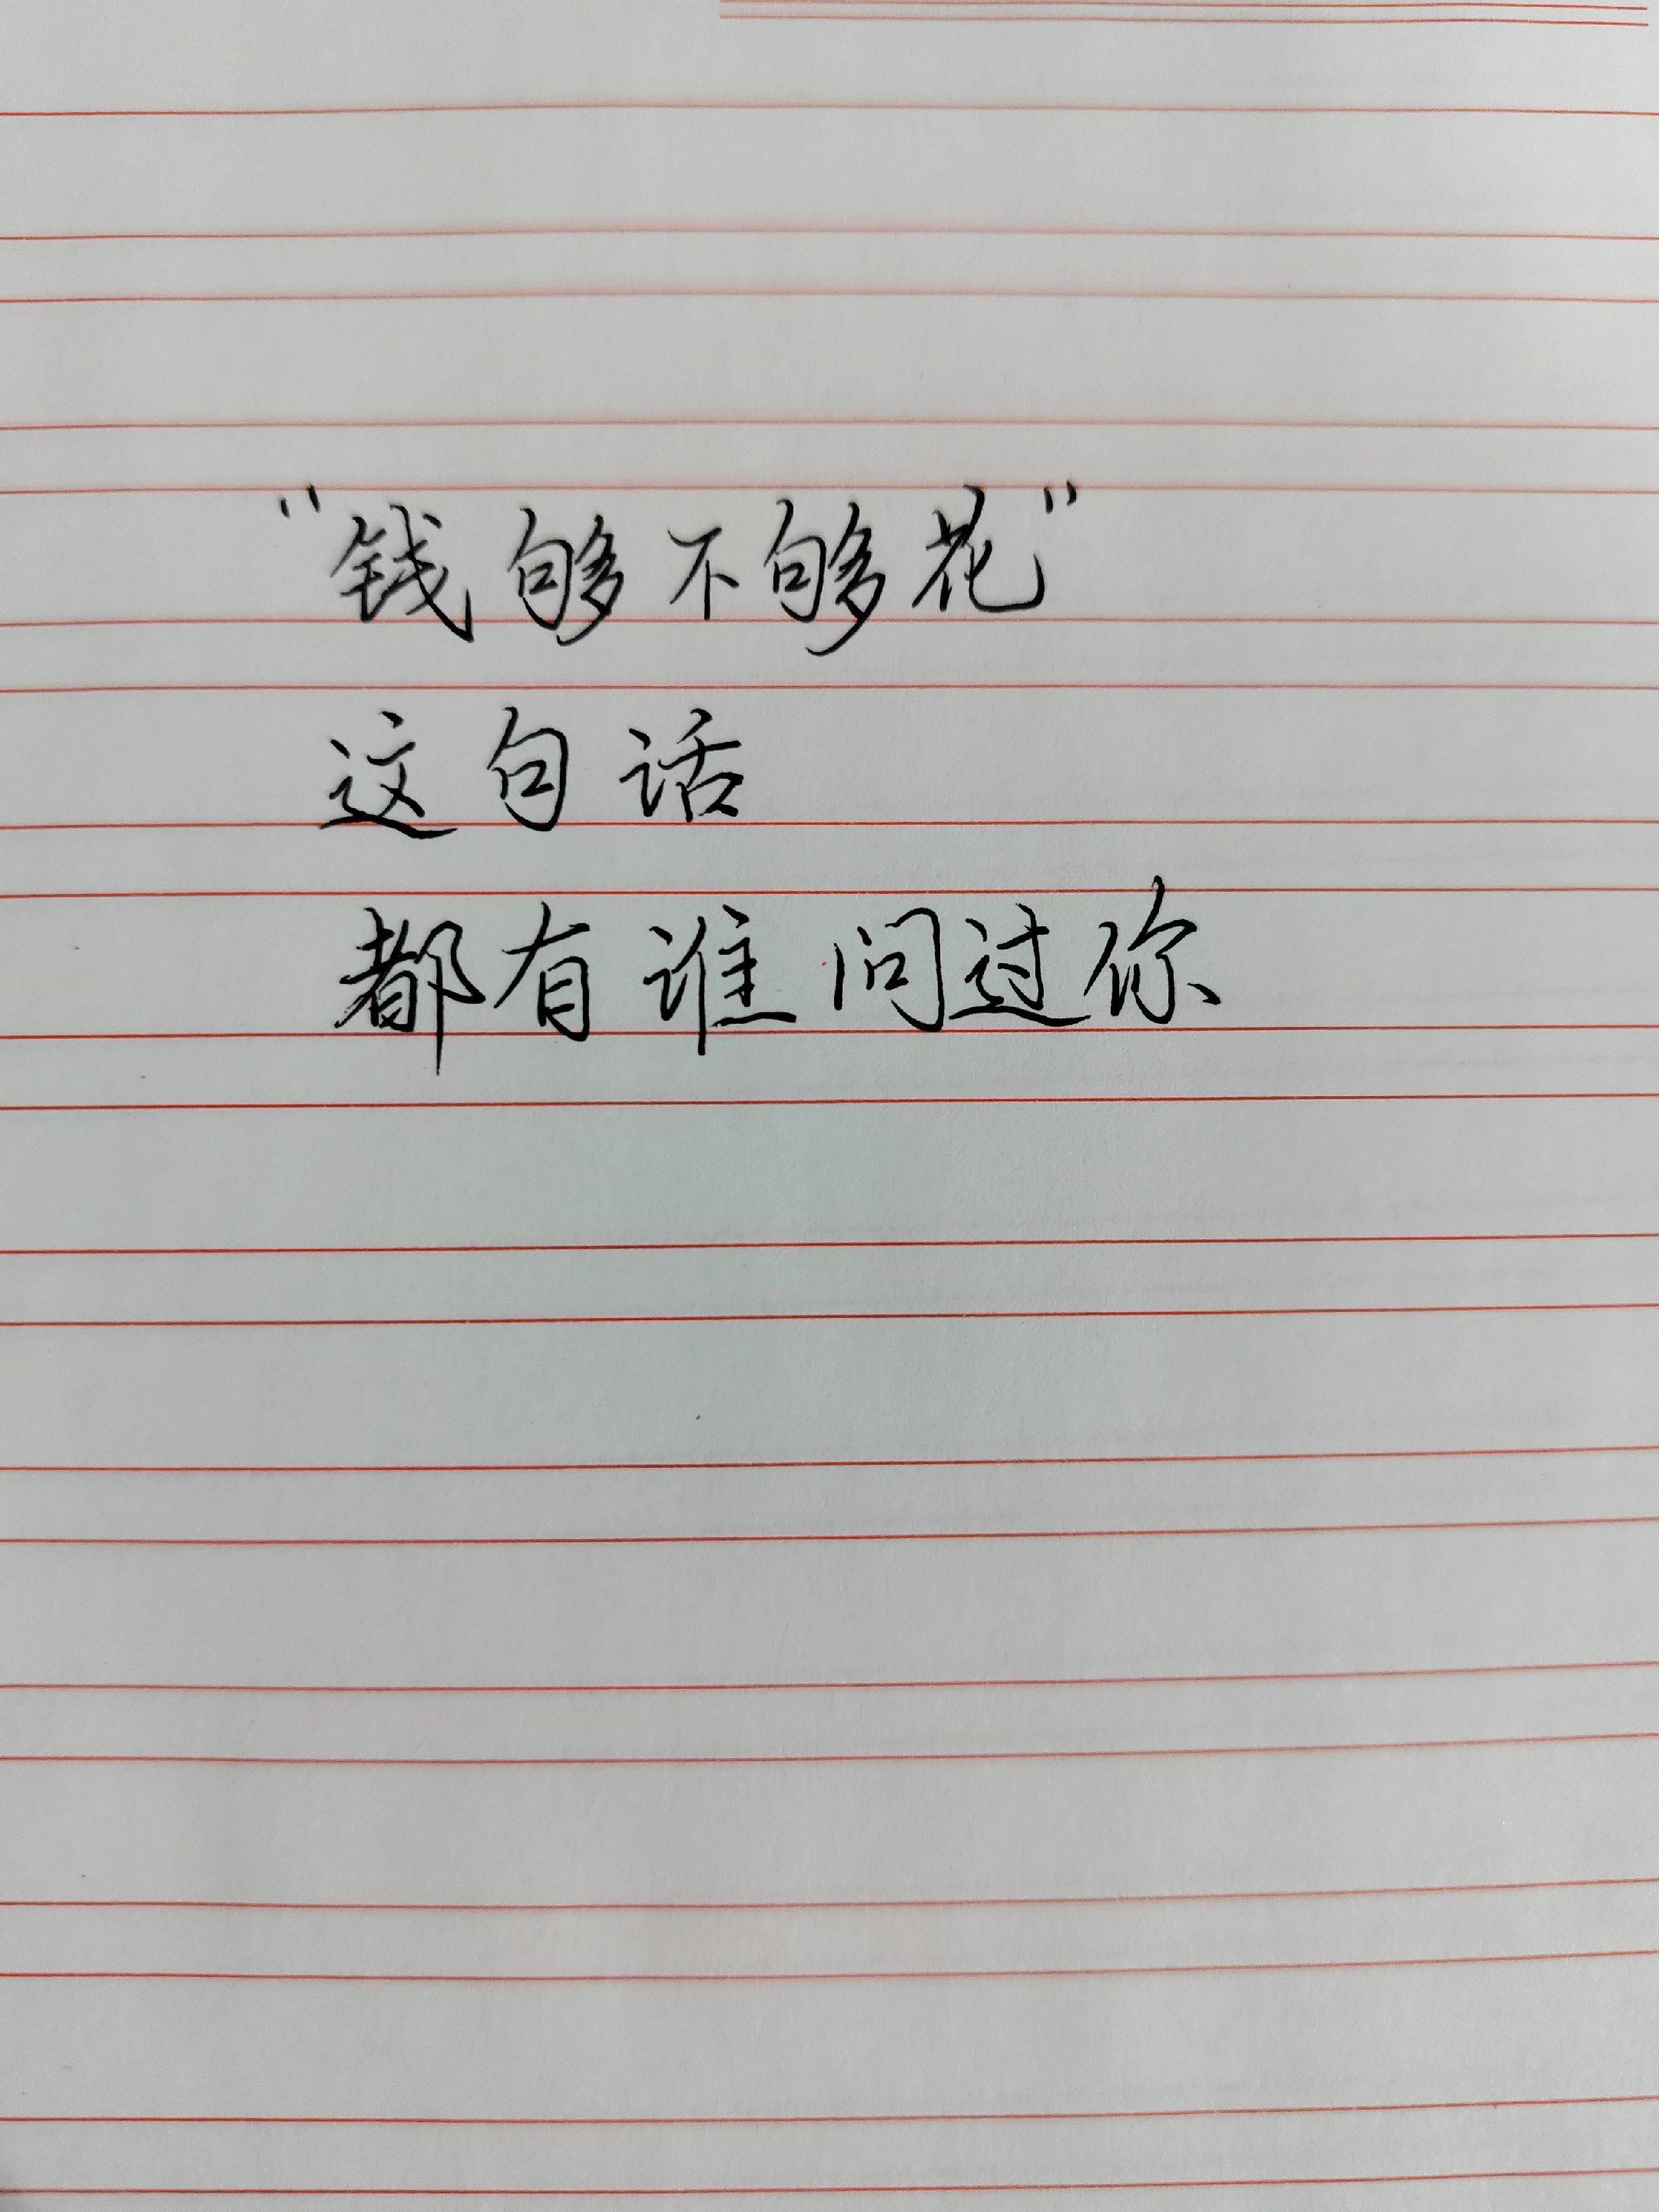 “钱够不够花”
这句话
都有谁问过你